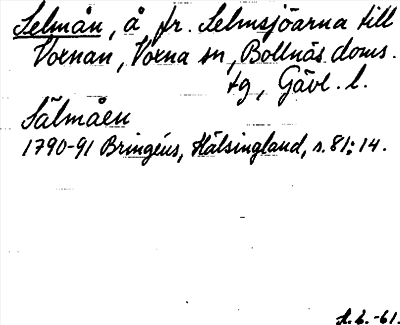 Selmån, å fr. Selmsjöarna till
Voxnan, Voxna sn, Bollnäs doms.
tg, Gävl. l.
Sälmåen
1790-91 Bringéus, Hälsingland, s. 81:14.